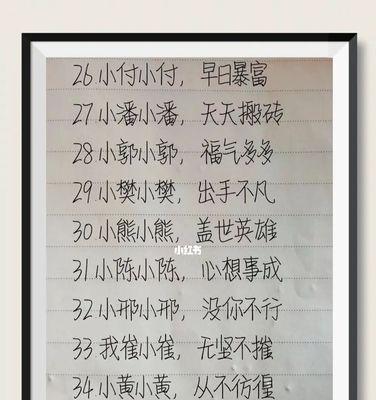 26.小付小付，早日暴富
27.小潘小潘，天天搬砖
28.小郭小郭，福气多多
29.小樊小樊，出手不凡
30.小熊小熊，盖世英雄
小红书
31.小陈小陈，心想事成
32.小邢小邢，没你不行
33.我崔小崔，无坚不摧
34.小黄小黄，从不彷徨